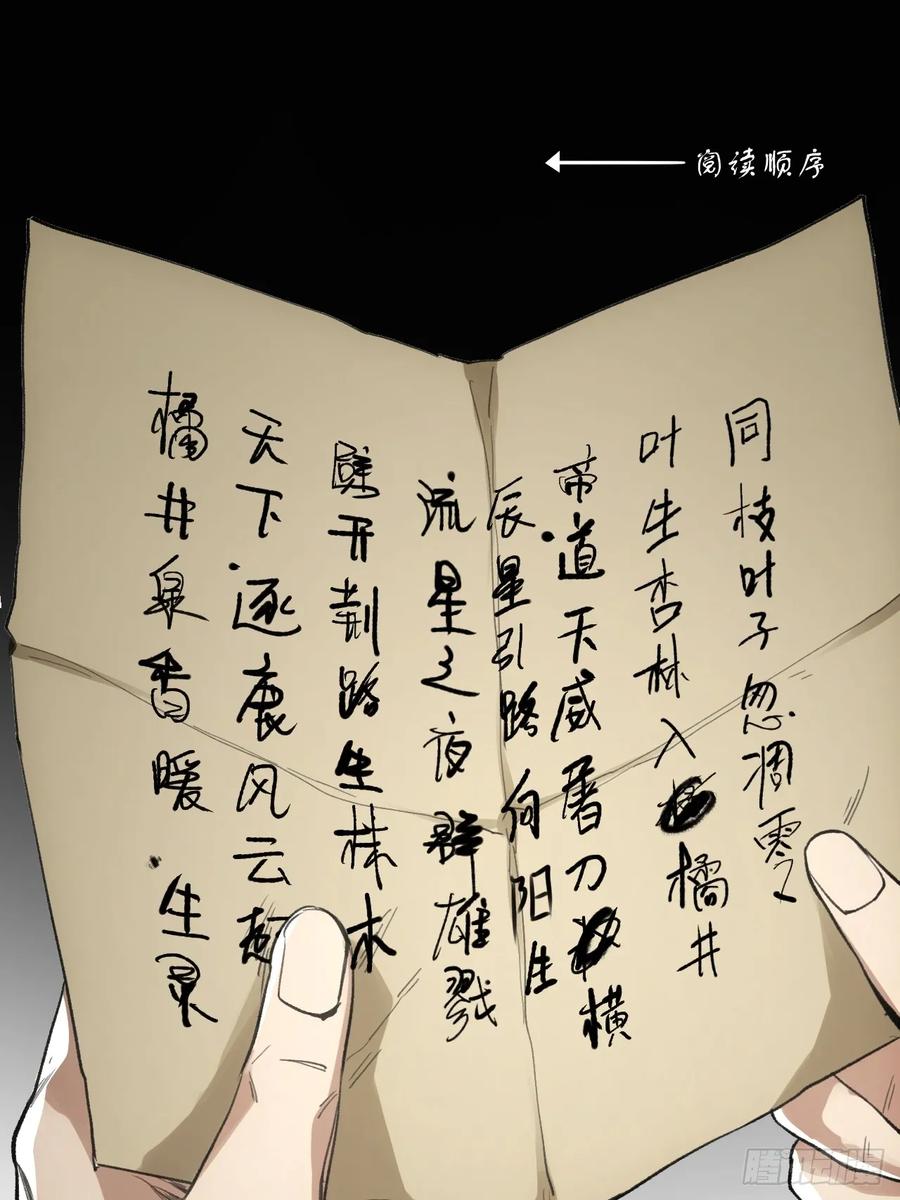 阅读顺序
同枝叶子忽凋零
叶生杏林入橘井
帝道天威屠刀横
辰星引路向阳生
流星之夜群雄戮
劈开荆路生株木
天下逐鹿风云起
橘井泉香暖生灵
腾讯动漫